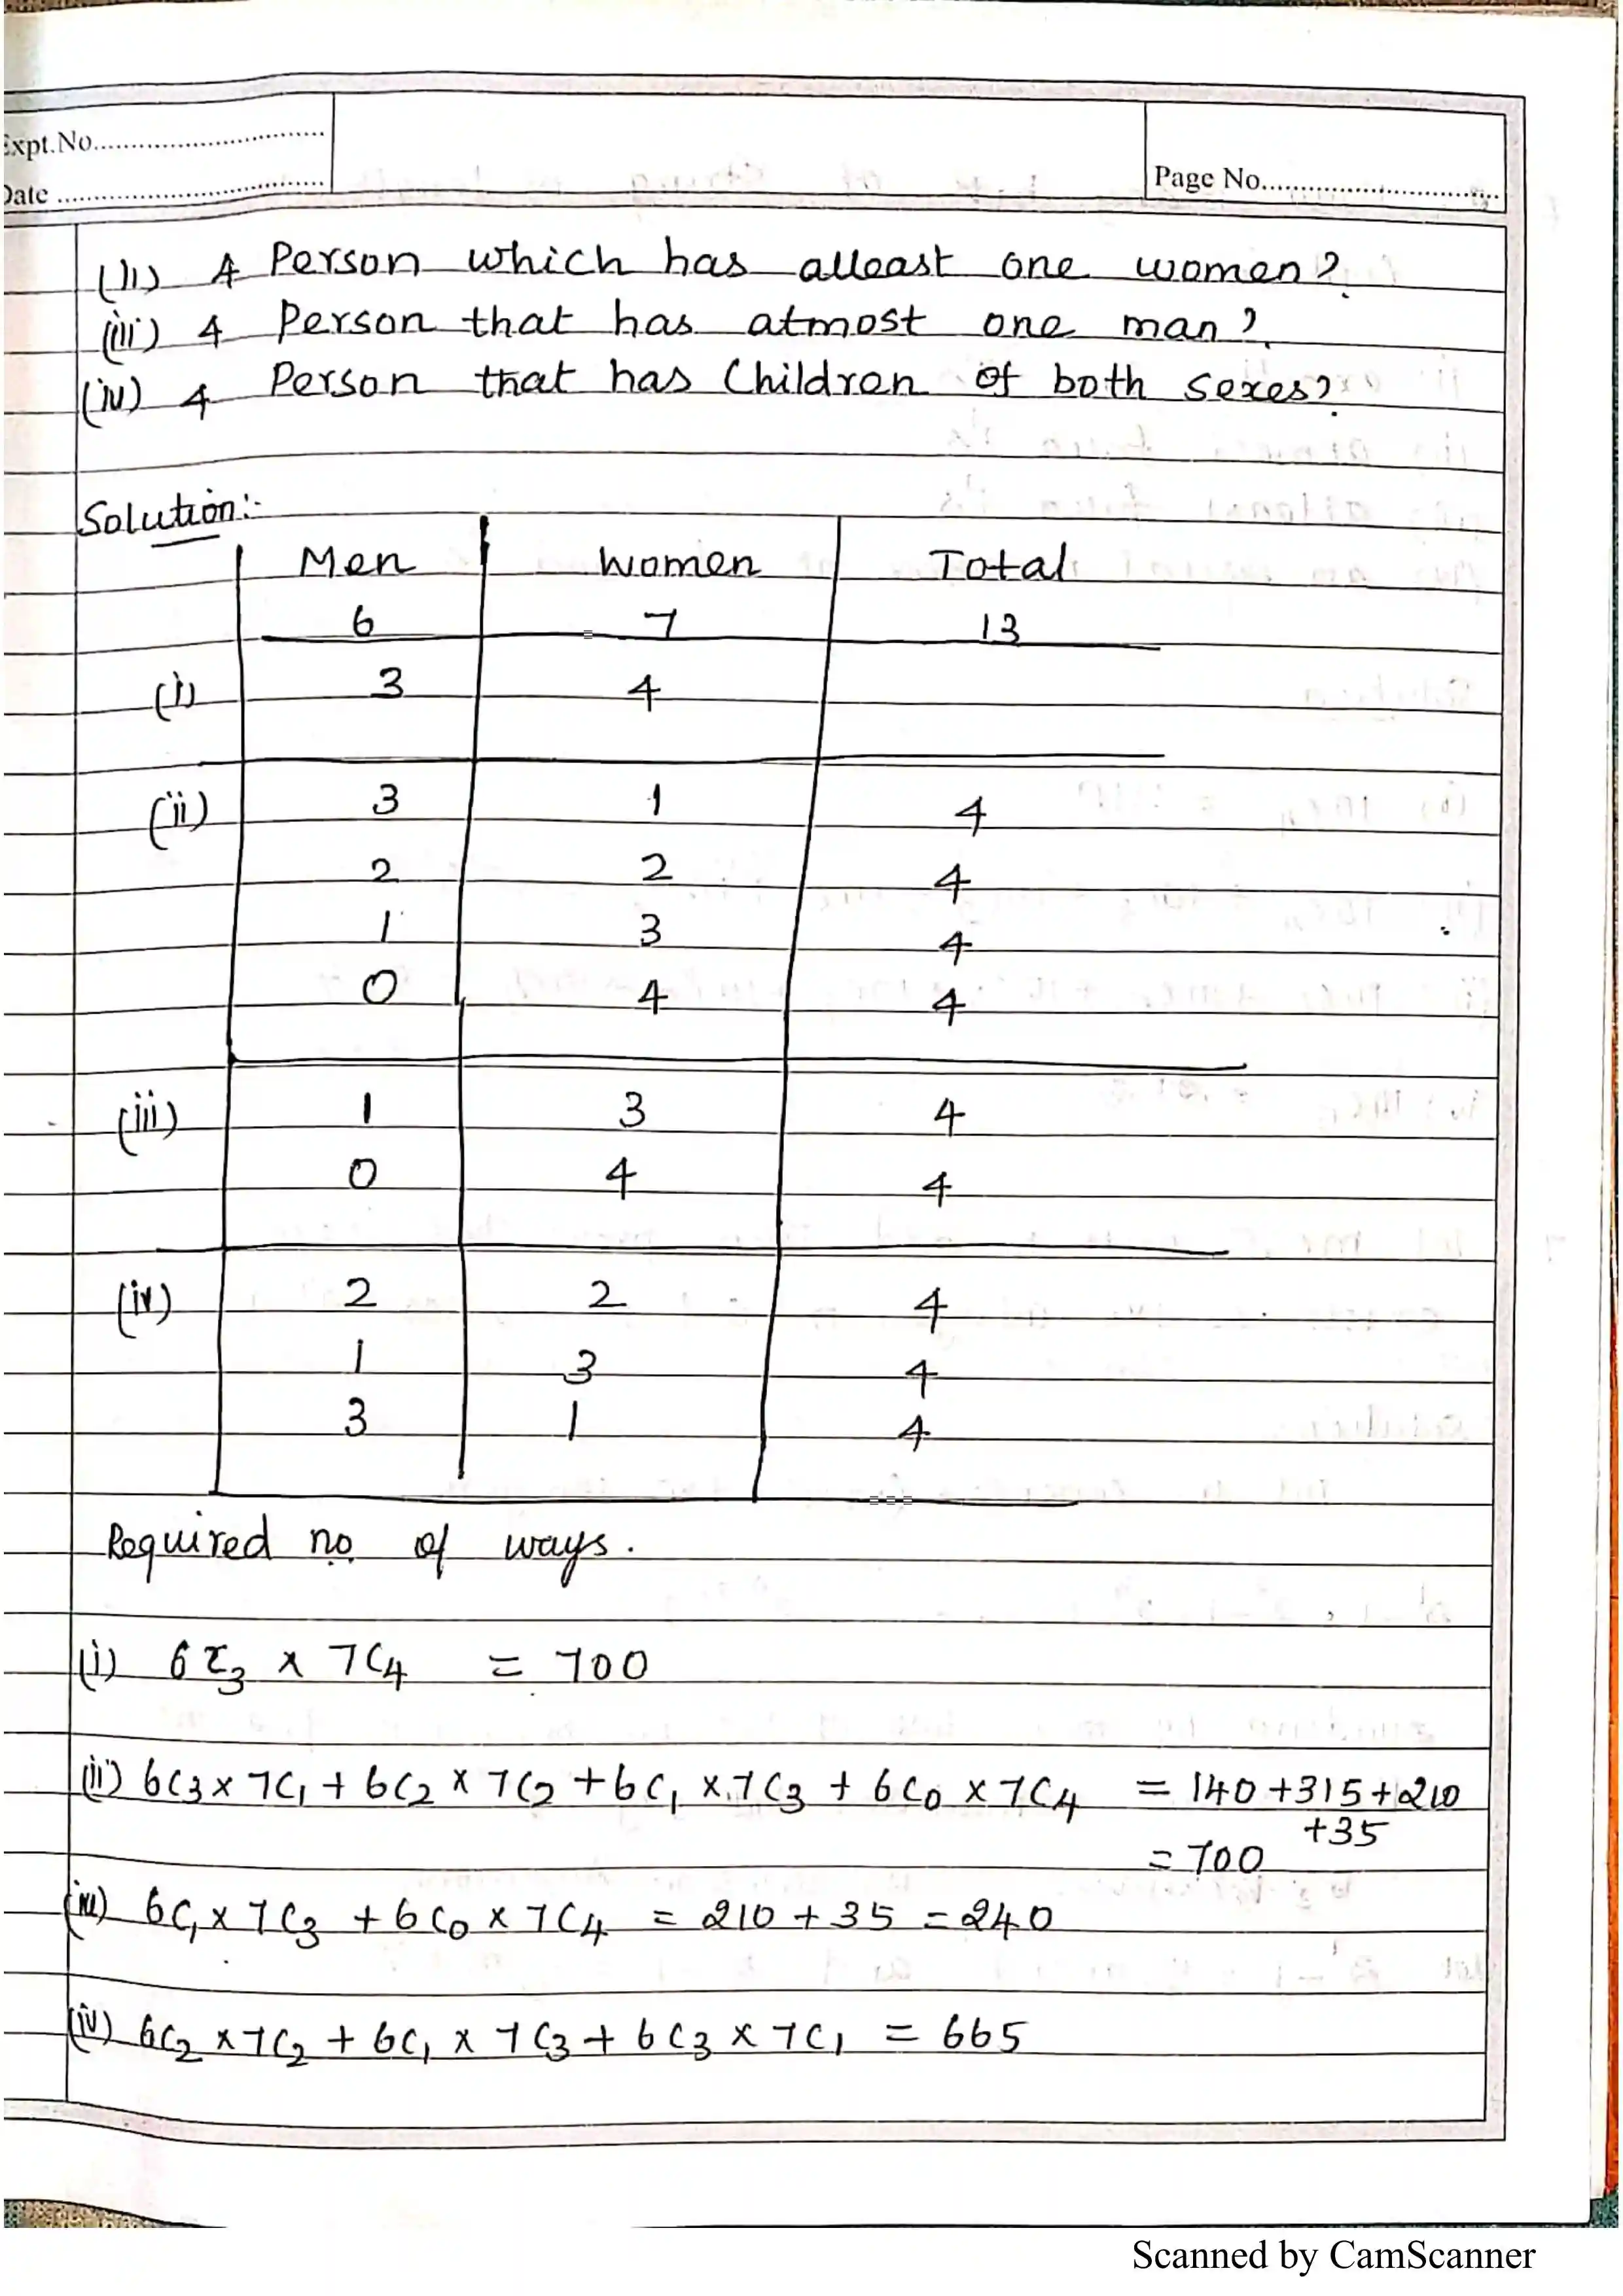 Expt.No.
Page No.
Date
(ii) 4 Person which has atleast one women?
(iii) 4 Person that has atmost one man?
(iv) 4 Person that has Children of both Sexes?
Solution:-
Men Women Total
6 7 13
(i) 3 4
(ii) 3 1 4
2 2 4
1 3 4
0 4 4
(iii) 1 3 4
0 4 4
(iv) 2 2 4
1 3 4
3 1 4
Required no of ways.
(i) 6C3 x 7C4 = 700
(ii) 6C3 x 7C1 + 6C2 x 7C2 + 6C1 x 7C3 + 6C0 x 7C4 = 140 + 315 + 210
+35
= 700
(iii) 6C1 x 7C3 + 6C0 x 7C4 = 210 + 35 = 240
(iv) 6C2 x 7C2 + 6C1 x 7C3 + 6C3 x 7C1 = 665
Scanned by CamScanner